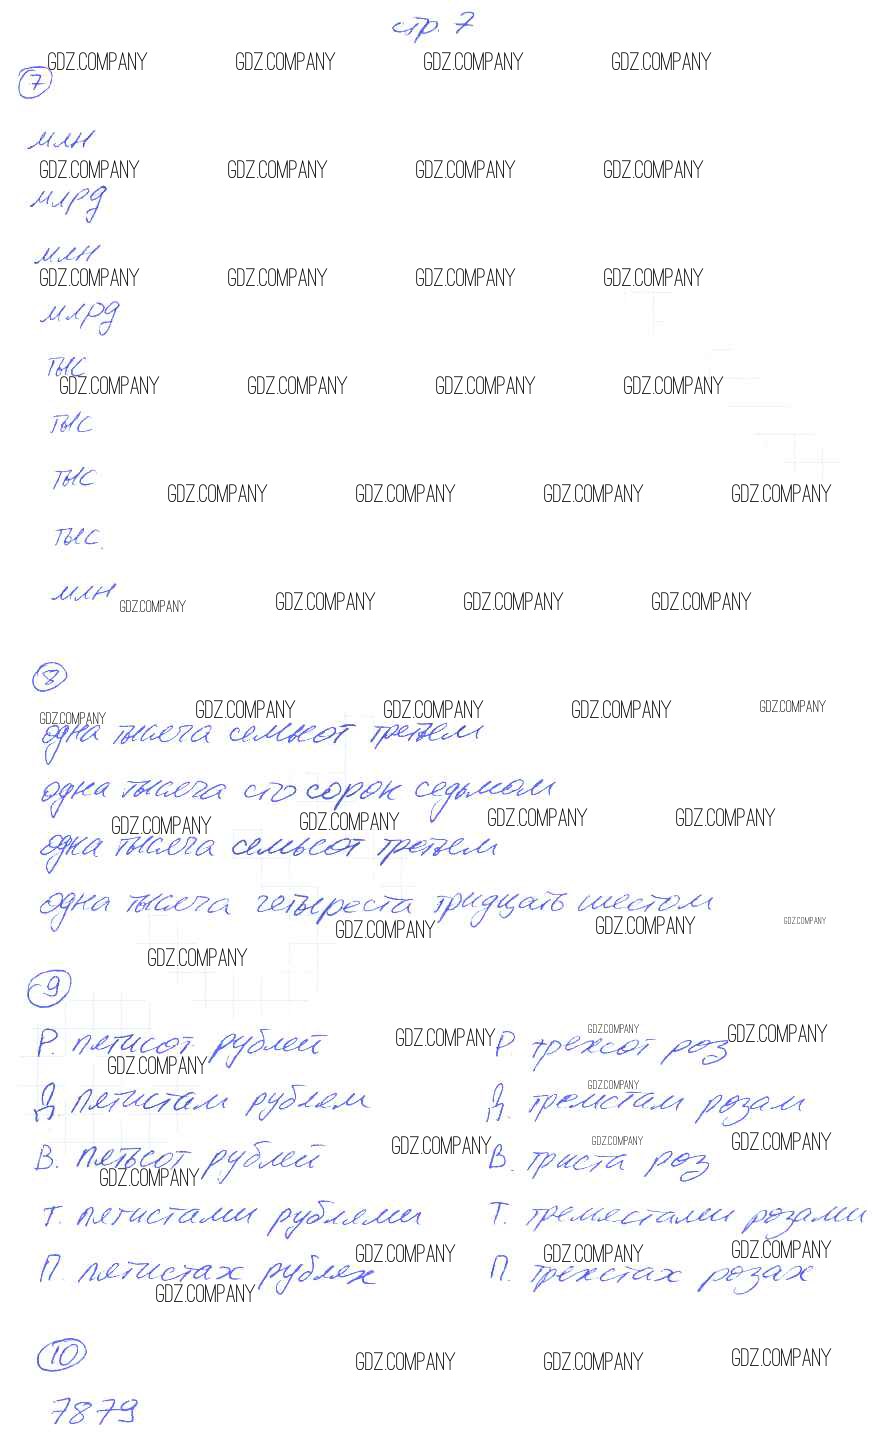 стр. 7
GDZ.COMPANY GDZ.COMPANY GDZ.COMPANY GDZ.COMPANY
7
млн
GDZ.COMPANY GDZ.COMPANY GDZ.COMPANY GDZ.COMPANY
млрд
млн
GDZ.COMPANY GDZ.COMPANY GDZ.COMPANY GDZ.COMPANY
млрд
тыс
GDZ.COMPANY GDZ.COMPANY GDZ.COMPANY GDZ.COMPANY
тыс
тыс
GDZ.COMPANY GDZ.COMPANY GDZ.COMPANY GDZ.COMPANY
тыс.
млн
GDZ.COMPANY GDZ.COMPANY GDZ.COMPANY GDZ.COMPANY
8
GDZ.COMPANY GDZ.COMPANY GDZ.COMPANY GDZ.COMPANY GDZ.COMPANY
одна тысяча семьсот третьем
одна тысяча сто сорок седьмом
GDZ.COMPANY GDZ.COMPANY GDZ.COMPANY GDZ.COMPANY
одна тысяча семьсот третьем
одна тысяча четыреста тридцать шестом
GDZ.COMPANY GDZ.COMPANY GDZ.COMPANY
GDZ.COMPANY
9
Р. пятисот рублей GDZ.COMPANY Р. трехсот роз GDZ.COMPANY GDZ.COMPANY
GDZ.COMPANY
Д. пятистам рублям Д. тремстам розам GDZ.COMPANY
В. пятьсот рублей GDZ.COMPANY В. триста роз GDZ.COMPANY GDZ.COMPANY
GDZ.COMPANY
Т. пятистами рублями Т. тремястами розами
GDZ.COMPANY GDZ.COMPANY GDZ.COMPANY
П. пятистах рублях П. трёхстах розах
GDZ.COMPANY
10
GDZ.COMPANY GDZ.COMPANY GDZ.COMPANY
7879